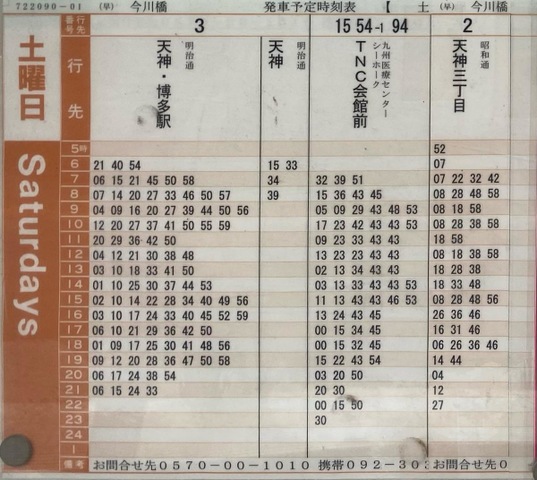 722090-01 (早) 今川橋 発車予定時刻表 【 土 (早) 今川橋
番号 行先 3 15 54-1 94 2
土曜日
行先
明治通
天神・博多駅
明治通
天神
九州医療センター
シーホーク
TNC会館前
昭和通
天神三丁目
Saturdays
5時 52
6 21 40 54 15 33 07
7 06 15 21 45 50 58 34 32 39 51 07 22 32 42
8 07 14 20 27 33 46 50 57 39 15 36 43 45 08 28 48 58
9 04 09 16 20 27 39 44 50 56 05 09 29 43 48 53 08 18 58
10 12 20 27 37 41 50 55 59 17 23 42 43 43 53 08 28 38 58
11 20 29 36 42 50 09 23 33 43 43 18 58
12 04 12 21 30 38 48 13 23 23 43 43 08 18 38 58
13 03 10 18 33 41 50 02 13 34 43 43 18 28 38
14 01 10 25 30 37 44 53 03 13 33 43 43 53 18 33 48
15 02 10 14 22 28 34 40 49 56 11 13 43 43 46 53 08 28 48 56
16 03 10 17 24 33 40 45 52 59 13 24 43 45 26 36 46
17 06 10 21 29 36 42 50 00 15 34 45 16 31 46
18 01 09 17 25 30 41 48 56 00 15 32 45 06 26 36 46
19 09 12 20 28 36 47 50 58 15 22 43 54 14 44
20 06 17 24 38 54 03 20 50 04
21 06 15 24 33 20 30 12
22 00 15 50 27
23 30
24
1
備考 お問合せ先0570-00-1010 携帯092-303 お問合せ先0